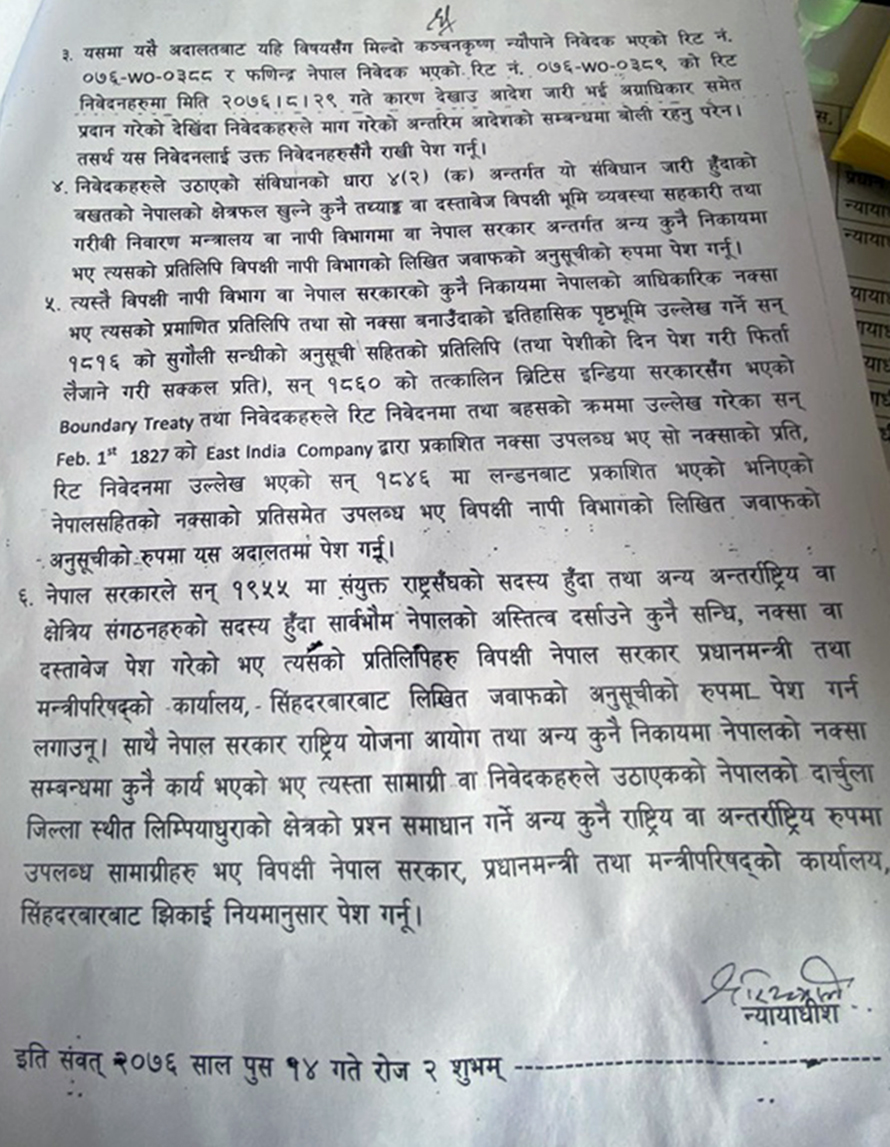 ३. यसमा यसै अदालतबाट यहि विषयसँग मिल्दो कञ्चनकृष्ण न्यौपाने निवेदक भएको रिट नं.
०७६-WO-०३८८ र फणिन्द्र नेपाल निवेदक भएको रिट नं. ०७६-WO-०३८९ को रिट
निवेदनहरुमा मिति २०७६।८।२९ गते कारण देखाउ आदेश जारी भई अग्राधिकार समेत
प्रदान गरेको देखिंदा निवेदकहरुले माग गरेको अन्तरिम आदेशको सम्बन्धमा बोली रहनु परेन।
तसर्थ यस निवेदनलाई उक्त निवेदनहरुसँगै राखी पेश गर्नू।
४. निवेदकहरुले उठाएको संविधानको धारा ४(२) (क) अन्तर्गत यो संविधान जारी हुँदाको
बखतको नेपालको क्षेत्रफल खुल्ने कुनै तथ्याङ्क वा दस्तावेज विपक्षी भूमि व्यवस्था सहकारी तथा
गरीवी निवारण मन्त्रालय वा नापी विभागमा वा नेपाल सरकार अन्तर्गत अन्य कुनै निकायमा
भए त्यसको प्रतिलिपि विपक्षी नापी विभागको लिखित जवाफको अनुसूचीको रुपमा पेश गर्नू।
५. त्यस्तै विपक्षी नापी विभाग वा नेपाल सरकारको कुनै निकायमा नेपालको आधिकारिक नक्सा
भए त्यसको प्रमाणित प्रतिलिपि तथा सो नक्सा बनाउँदाको इतिहासिक पृष्ठभूमि उल्लेख गर्ने सन्
१८१६ को सुगौली सन्धीको अनुसूची सहितको प्रतिलिपि (तथा पेशीको दिन पेश गरी फिर्ता
लैजाने गरी सक्कल प्रति), सन् १८६० को तत्कालिन ब्रिटिस इन्डिया सरकारसँग भएको
Boundary Treaty तथा निवेदकहरुले रिट निवेदनमा तथा बहसको क्रममा उल्लेख गरेका सन्
Feb. 1st 1827 को East India Company द्वारा प्रकाशित नक्सा उपलब्ध भए सो नक्साको प्रति,
रिट निवेदनमा उल्लेख भएको सन् १८४६ मा लन्डनबाट प्रकाशित भएको भनिएको
नेपालसहितको नक्साको प्रतिसमेत उपलब्ध भए विपक्षी नापी विभागको लिखित जवाफको
अनुसूचीको रुपमा यस अदालतमा पेश गर्नू।
६. नेपाल सरकारले सन् १९५५ मा संयुक्त राष्ट्रसँघको सदस्य हुँदा तथा अन्य अन्तर्राष्ट्रिय वा
क्षेत्रिय संगठनहरुको सदस्य हुँदा सार्वभौम नेपालको अस्तित्व दर्साउने कुनै सन्धि, नक्सा वा
दस्तावेज पेश गरेको भए त्यसको प्रतिलिपिहरु विपक्षी नेपाल सरकार प्रधानमन्त्री तथा
मन्त्रीपरिषद्को कार्यालय, सिंहदरबारबाट लिखित जवाफको अनुसूचीको रुपमा पेश गर्न
लगाउनू। साथै नेपाल सरकार राष्ट्रिय योजना आयोग तथा अन्य कुनै निकायमा नेपालको नक्सा
सम्बन्धमा कुनै कार्य भएको भए त्यस्ता सामाग्री वा निवेदकहरुले उठाएकको नेपालको दार्चुला
जिल्ला स्थीत लिम्पियाधुराको क्षेत्रको प्रश्न समाधान गर्ने अन्य कुनै राष्ट्रिय वा अन्तर्राष्ट्रिय रुपमा
उपलब्ध सामाग्रीहरु भए विपक्षी नेपाल सरकार, प्रधानमन्त्री तथा मन्त्रीपरिषद्को कार्यालय,
सिंहदरबारबाट झिकाई नियमानुसार पेश गर्नू।
न्यायाधीश
इति संवत् २०७६ साल पुस १४ गते रोज २ शुभम् --------------------